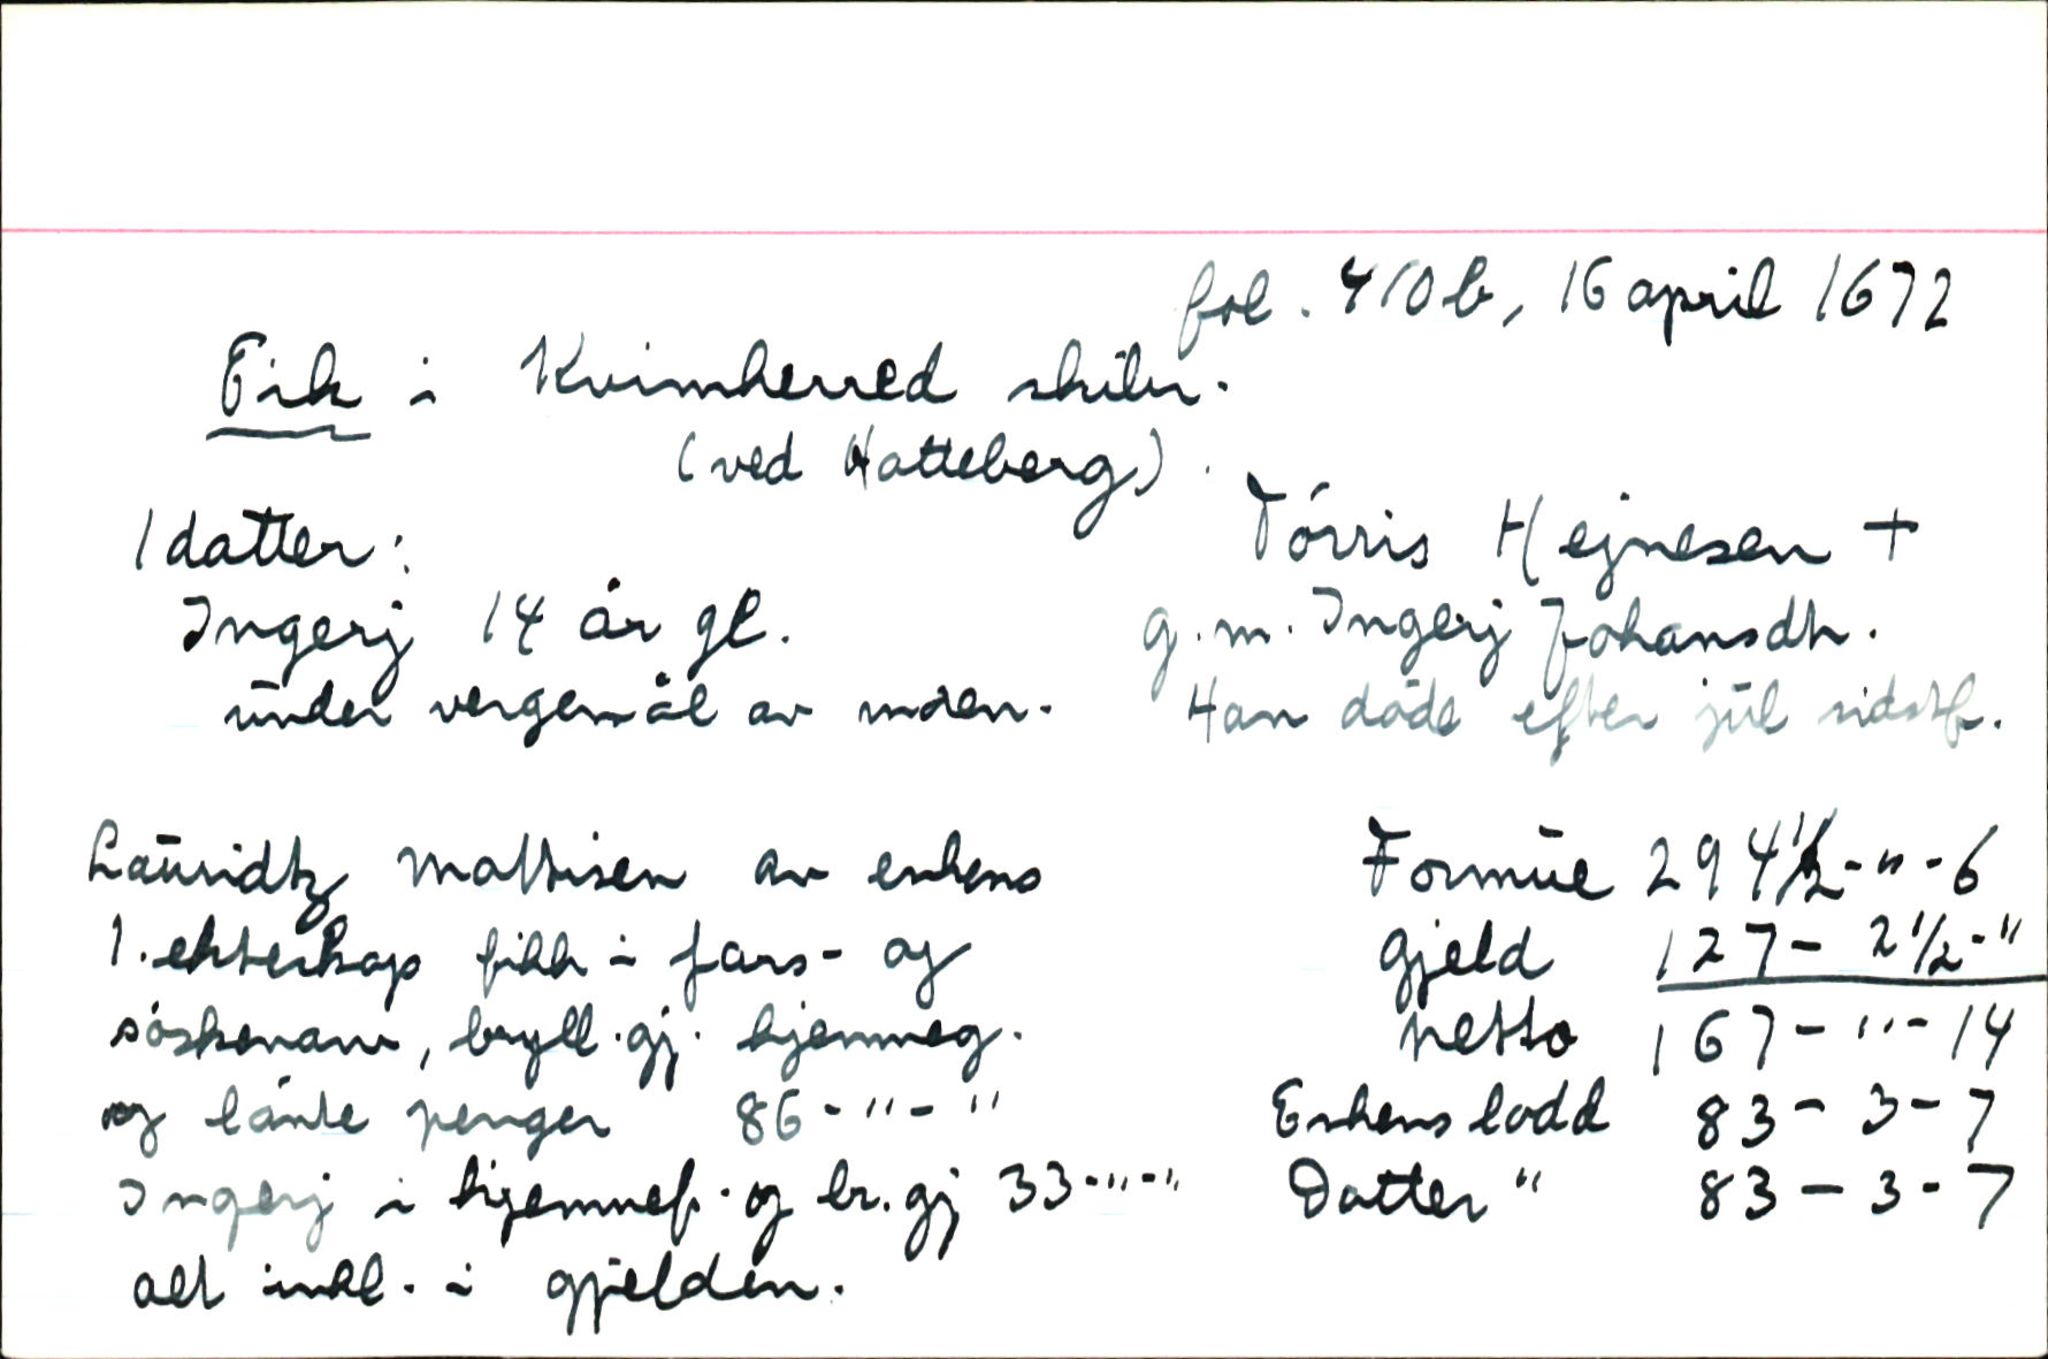 fol. 410b, 16 april 1672
Eik i Kvinherred skibr.
(ved Hatteberg).
1 datter:
Ingerj 14 år gl.
under vergemål av moren.
Tórris Hejnesen +
g.m. Ingerj Johansdtr.
Han döde efter jul sidstl.
Lauridtz Mattisen av enkens
1. ekteskap fikk i fars- og
söskenarv, bryll.gj. hjemmeg.
og lånte penger 86-"-"
Ingerj i hjemmef. og br.gj 33-"-"
alt inkl. i gjelden.
Formue 294 1/2-"-6
Gjeld 127- 2 1/2-"
netto 167-"-14
Enkens lodd 83-3-7
Datter " 83-3-7